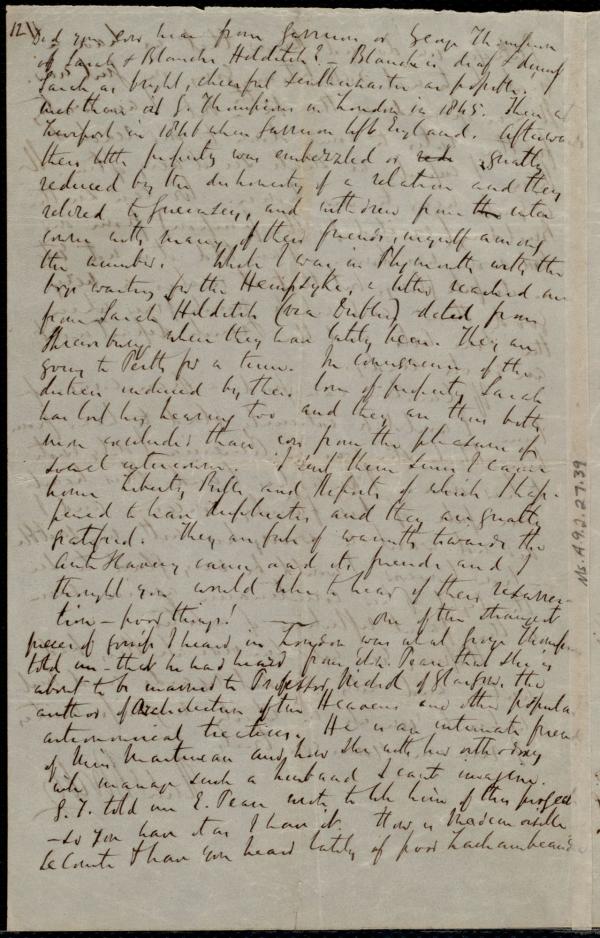 12/ Did you ever hear from Garrison or George Thompson
of Sarah & Blanche Hilditch? – Blanche is deaf & dumb
Sarah as bright, cheerful as possible. I
met them at G. Thompson's in London in 1845. Then a
Liverpool in 1846 when Garrison left England. Afterwa
their little property was embezzled or greatly
reduced by the dishonesty of a relation and they
retired to Guernsey, and withdrew from the inter
course with many of their friends, myself among
the number. While I was in Plymouth with the
boys waiting for the Hempsyke, a letter reached me
from Sarah Hilditch (via Dublin) dated from
Shrewsbury where they have lately been. They are
going to Perth for a time. In consequence of the
induced by their loss of property Sarah
has lost her hearing too and they are thus both
more excluded than ever from the pleasure of
social intercourse. I sent them since I came
home Liberty Bells and Reports of which I hap-
pened to have duplicates and they are greatly
gratified. They are full of warmth towards the
Anti Slavery cause and its friends and I
thought you would like to hear of their resurrec-
tion – poor things! — One of the strangest
pieces of gossip I heard in London was what George Thompson
told me – that he had heard from Eliz. Pease that she is
about to be married to Professor Nichol of Glasgow, the
author of Architecture of the Heavens and other popular
astronomical treatises. He is an intimate friend
of Miss Martineau and how she with her orthodoxy
will manage such a husband I can't imagine.
G. T. told me E. Pease wrote to tell him of this project
– so you have it as I have it. How is
& have you heard lately of poor
Ms. A.9.2.27.39